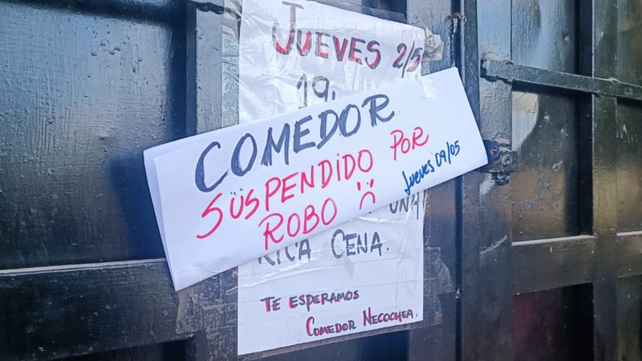 JUEVES 2/5
19.
COMEDOR
SUSPENDIDO POR
ROBO
Jueves 09/05
UNA
RICA CENA.
TE ESPERAMOS
COMEDOR NECOCHEA.